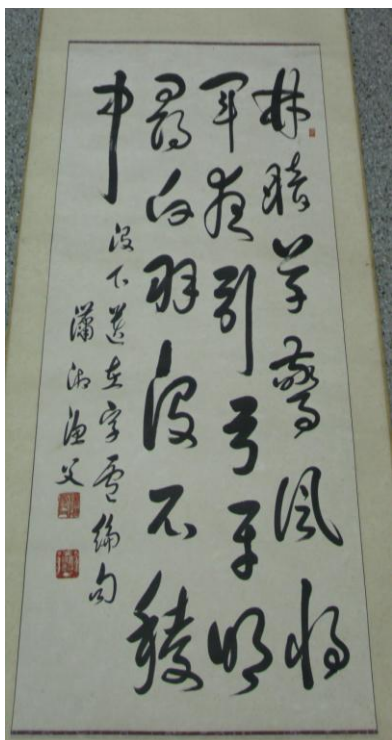 林暗草驚風將
軍夜引弓平明
尋白羽沒石稜
中
沒下遺在字盧綸句
瀟湘漁父